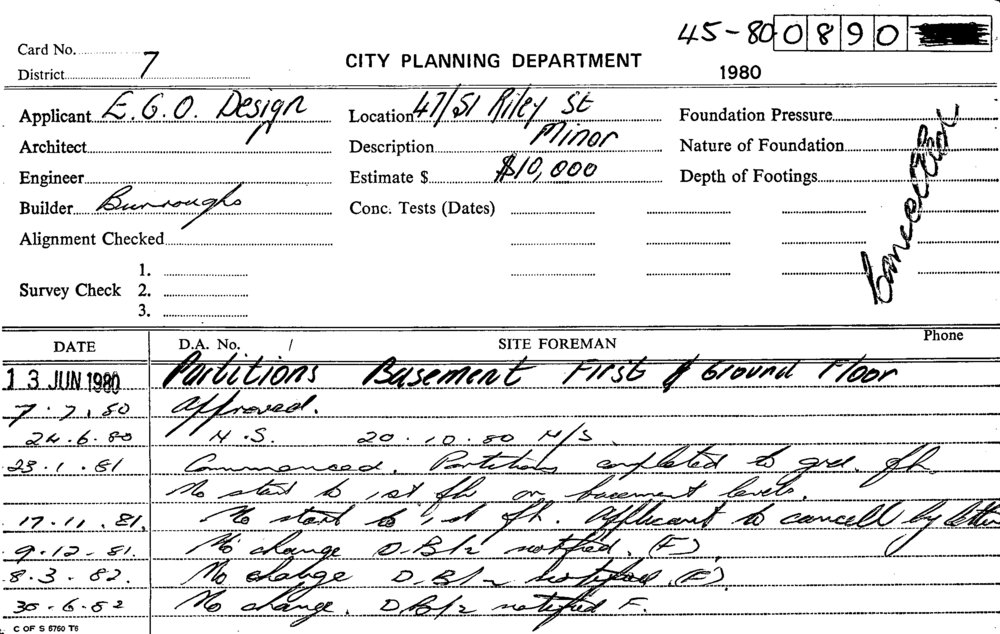 45-80 0890
Card No.
District 7
CITY PLANNING DEPARTMENT
1980
Applicant E.G.O. Design
Location 47/51 Riley St
Foundation Pressure
Architect
Description Minor
Nature of Foundation
Engineer
Estimate $ $10,000
Depth of Footings
Builder Burroughs
Conc. Tests (Dates)
Alignment Checked
Survey Check
1.
2.
3.
DATE
D.A. No. /
SITE FOREMAN
Phone
13 JUN 1980 Partitions Basement First & Ground Floor
7.7.80 Approved.
24.6.80 N.S. 20.10.80 N/S.
23.1.81 Commenced. Partitions completed to grd. flr.
No start to 1st flr or basement levels.
17.11.81. No start to 1st flr. Applicant to cancell by letter
9.12.81. No change D.B/2 notified. (F).
8.3.82. No change D.B/2 notified (F)
30.6.82 No change. D.B/2 notified F.
C OF S 6760 T6